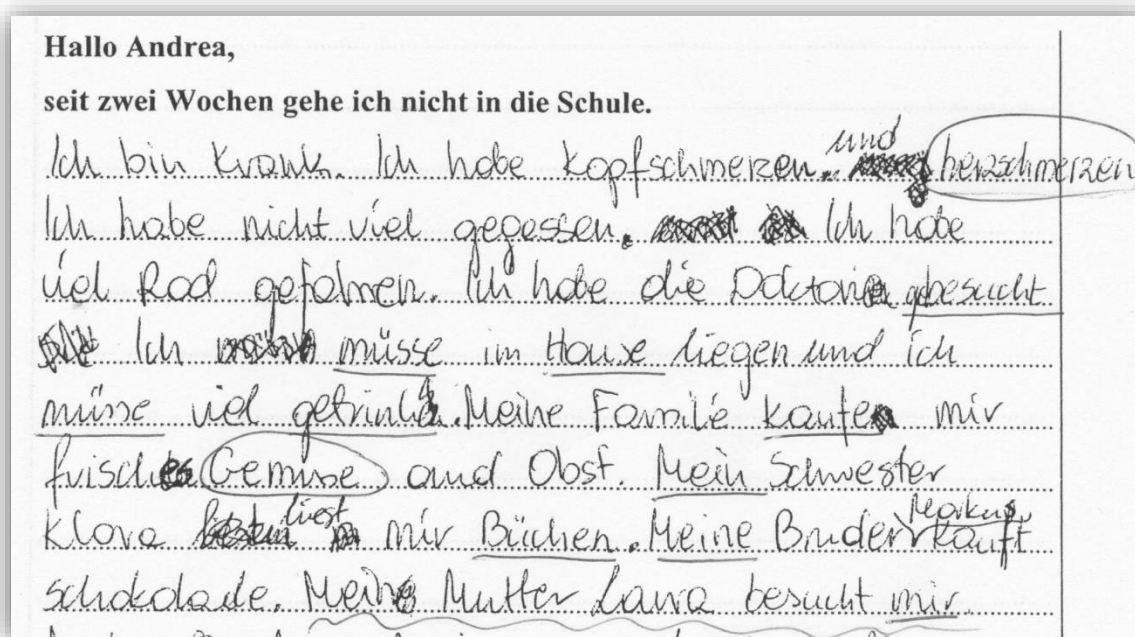 Hallo Andrea,
seit zwei Wochen gehe ich nicht in die Schule.
Ich bin Krank. Ich habe Kopfschmerzen und herzschmerzen
Ich habe nicht viel gegessen. Ich habe
viel Rad gefahren. Ich habe die gebesucht
Ich müsse im Hause liegen und ich
müsse viel getrink. Meine Familie kaufe mir
frisch Gemüse and Obst. Mein Schwester
Klara liest mir Büchen. Meine Bruder Markus kauft
schokolade. Meine Mutter Laura besucht mir.